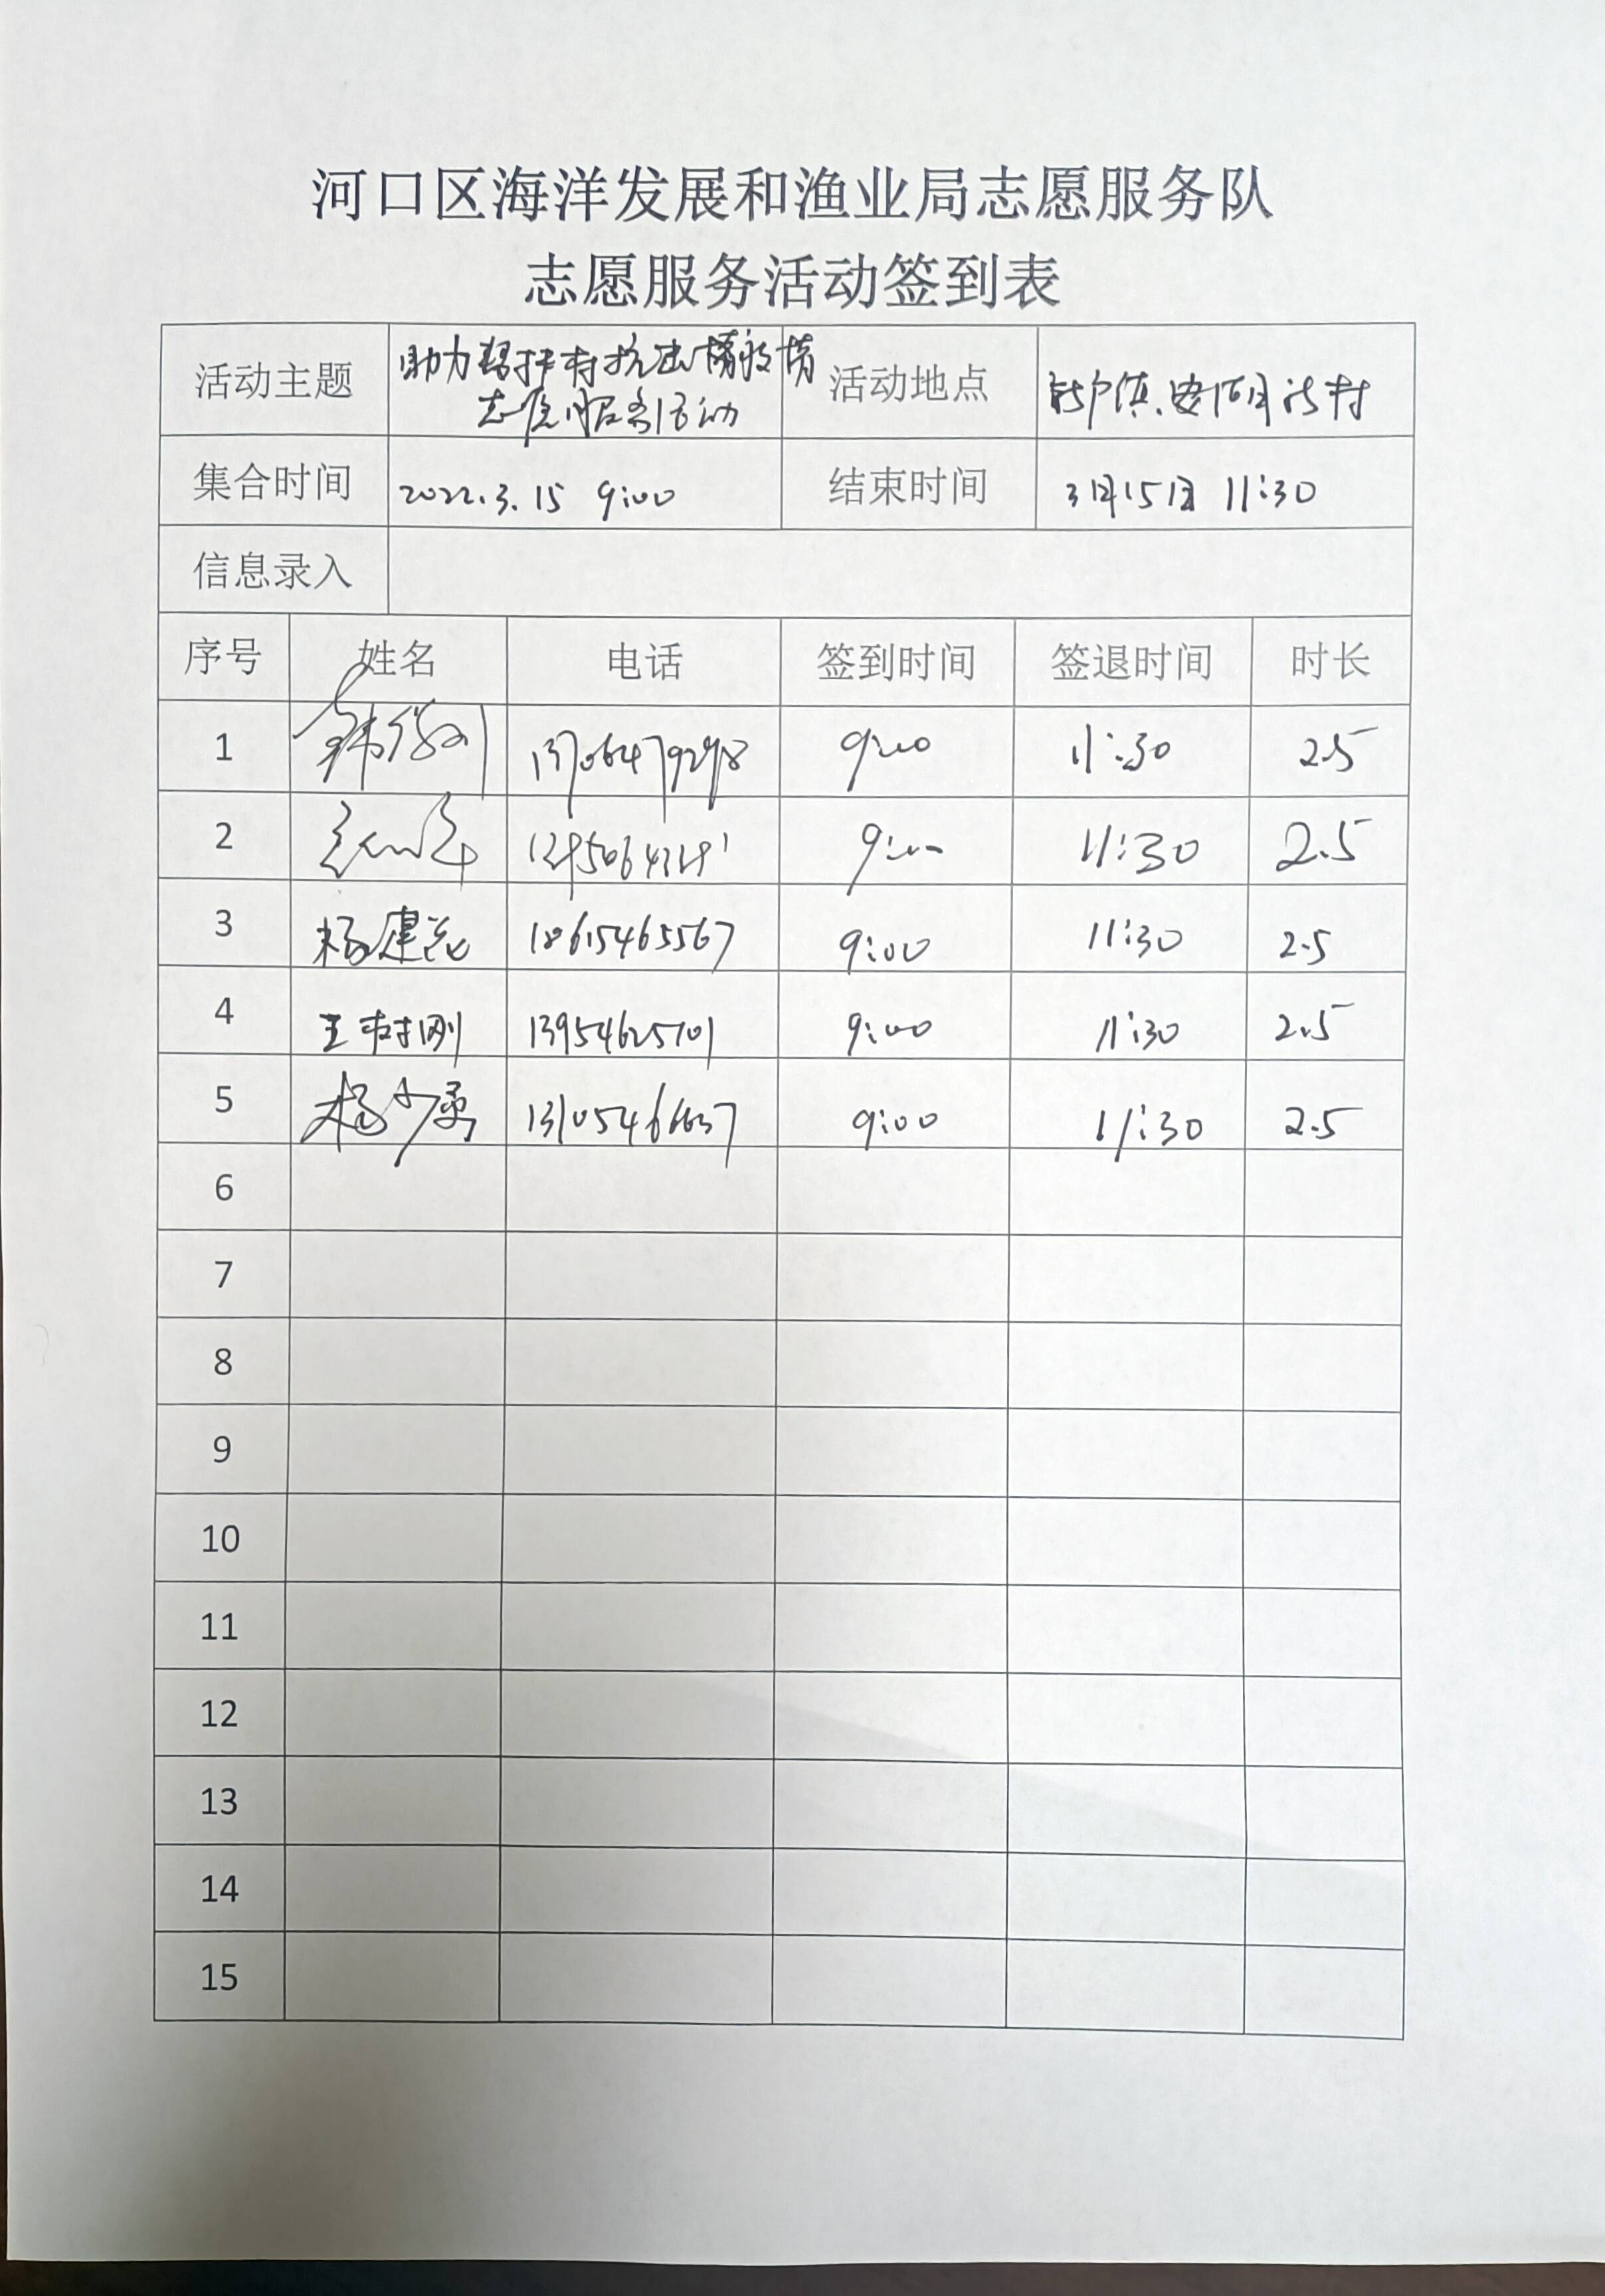 河口区海洋发展和渔业局志愿服务队
志愿服务活动签到表
活动主题 助力 村抗击 疫情 志愿服务活动 活动地点 新户镇 村
集合时间 2022.3.15 9:00 结束时间 3月15日 11:30
信息录入
序号 姓名 电话 签到时间 签退时间 时长
1 9:00 11:30 2.5
2 9:00 11:30 2.5
3 杨建 18615465567 9:00 11:30 2.5
4 王树刚 13954625701 9:00 11:30 2.5
5 杨少 9:00 11:30 2.5
6
7
8
9
10
11
12
13
14
15